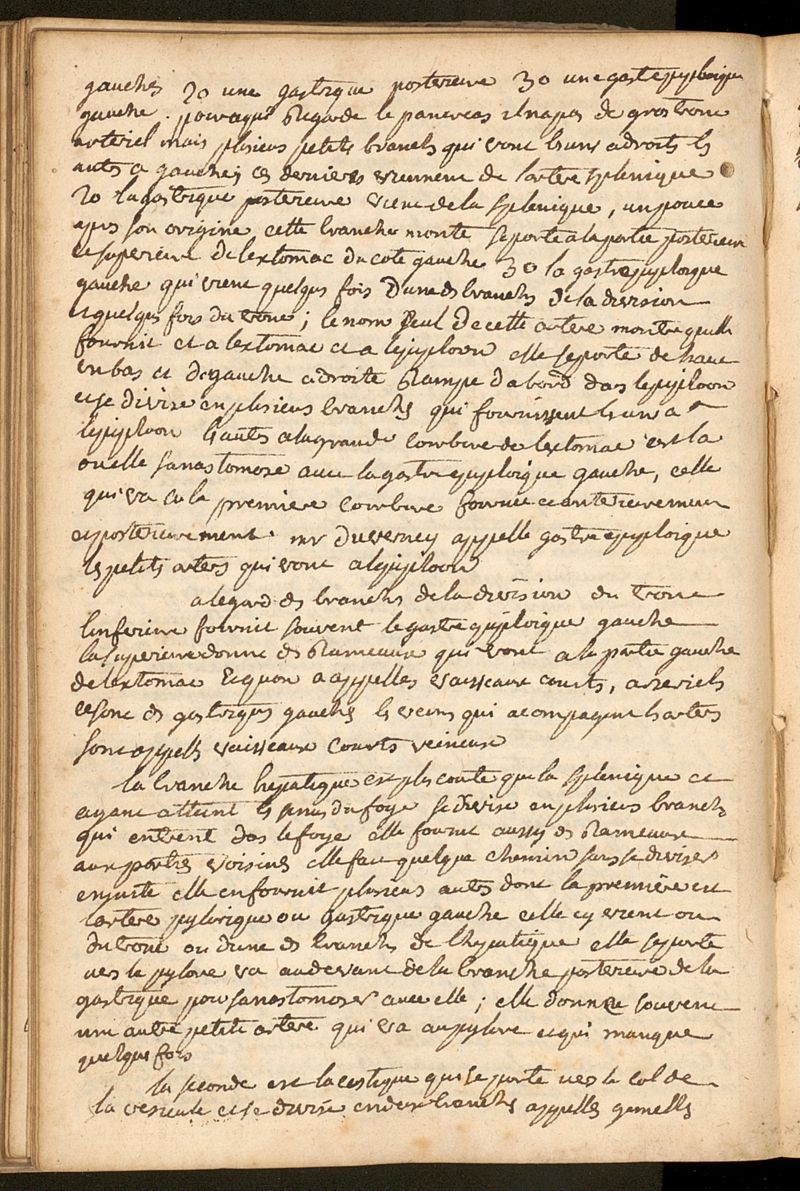 gauches 20 une gastrique posterieure 30 une gastrepiploique
gauche. pour ce qui regarde le pancreas il na pas de gros tronc
arteriel mais plusieurs petits branches qui vont les uns a droite les
autres a gauche; ces derniers viennent de lartere splenique
20 la gastrique posterieure vient de la splenique, un pouce
apres son origine cette branche monte se porte a la partie posterieure
et superieure de lextomac du coté gauche 30 la gastrepiploique
gauche qui vient quelqus fois dune ds branchs de la division
et quelqus fois du tronc; le nom seul de cette artere montre quelle
fournit et a lextomac et a lepiploon elle se porte de haut
en bas et de gauche a droite Rampe dabord dans lepiploon
et se divise en plusieurs branches qui fournissent les uns a
lepiploon les autres a la grande courbure de lextomac cest la
ou elle sanastomose avec la gastrepiploique gauche, celle
qui va a la premiere courbure fournie anterieurement
et posterieurement. mr duverney appelle gastrepiploique
les petits arters qui vont a lepiploon
a legard ds branchs de la division du tronc
linferieure fournit souvent le gastrepiploique gauche
la superieure donne ds Rameaux qui vont a la partie gauche
de lextomac et quon a appelles vaisseaux courts, arteriels
ce sont ds gastriques gauches les veins qui acompagnent ls arters
sont appells vaisseaux courts veineux
la branche hepatique est plus courte que la splenique et
ayant atteint le sinus du foye se divise en plusieurs branchs
qui entrent dans le foye elle fournit aussy ds Rameaux
aux parties voisines elle fait quelque chemin sans se diviser
ensuite elle en fournit plusieurs autres dont la premiere est
lartere pylorique ou gastrique gauche celle cy vient ou
du tronc ou dune ds branchs de lhepatique elle se porte
vers le pylore va audevant de la branche posterieure de la
gastrique pour sanastomoser avec elle; elle donne souvent
une autre petite artere qui va au pylore et qui manque
quelqus fois
la seconde est la cestique qui se porte vers le col de
la vesicule et se divise en deux branches appells gemells